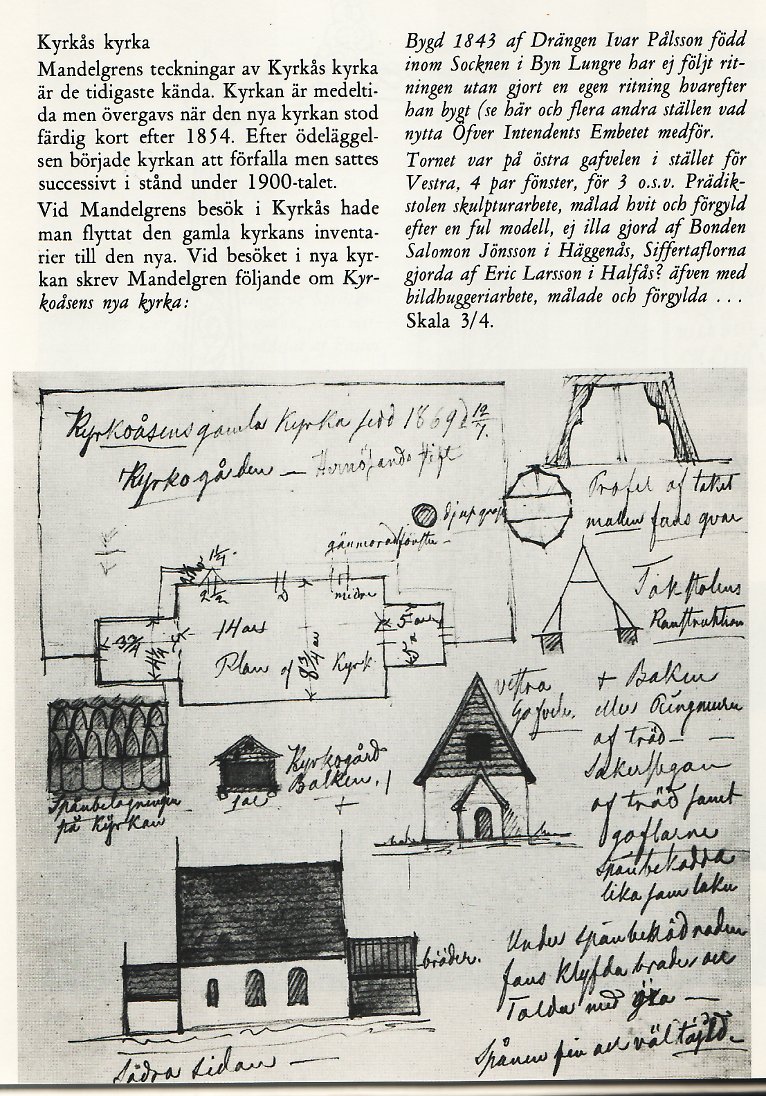 Kyrkås kyrka
Mandelgrens teckningar av Kyrkås kyrka
är de tidigaste kända. Kyrkan är medelti-
da men övergavs när den nya kyrkan stod
färdig kort efter 1854. Efter ödeläggel-
sen började kyrkan att förfalla men sattes
successivt i stånd under 1900-talet.
Vid Mandelgrens besök i Kyrkås hade
man flyttat den gamla kyrkans inventa-
rier till den nya. Vid besöket i nya kyr-
kan skrev Mandelgren följande om Kyr-
koåsens nya kyrka:
Bygd 1843 af Drängen Ivar Pålsson född
inom Socknen i Byn Lungre har ej följt rit-
ningen utan gjort en egen ritning hvarefter
han bygt (se här och flera andra ställen vad
nytta Öfver Intendents Embetet medför.
Tornet var på östra gafvelen i stället för
Vestra, 4 par fönster, för 3 o.s.v. Prädik-
stolen skulpturarbete, målad hvit och förgyld
efter en ful modell, ej illa gjord af Bonden
Salomon Jönsson i Häggenås, Siffertaflorna
gjorda af Eric Larsson i Halfås? äfven med
bildhuggeriarbete, målade och förgylda ...
Skala 3/4.
Kyrkoåsens gamla Kyrka 1869 12/7.
Kyrkogården —
djup
Profil af taket
fans qvar
Takstolens
Konstruktion
14 al
Plan af Kyrk
8 3/4 al
5 al
3 3/4
4 1/4
1 1/4
2 1/2
Vestra
Gafveln.
Spånbeläggningen
på Kyrkan
Kyrkogård
Balken.
+
1 al
+ Balken
eller Ringmuren
af träd —
af träd samt
gaflarne
spånbeklädda
lika som taket
bräder.
Under spånbeklädnaden
fans klyfda bräder
med yxa —
Spånen väl
Södra sidan —